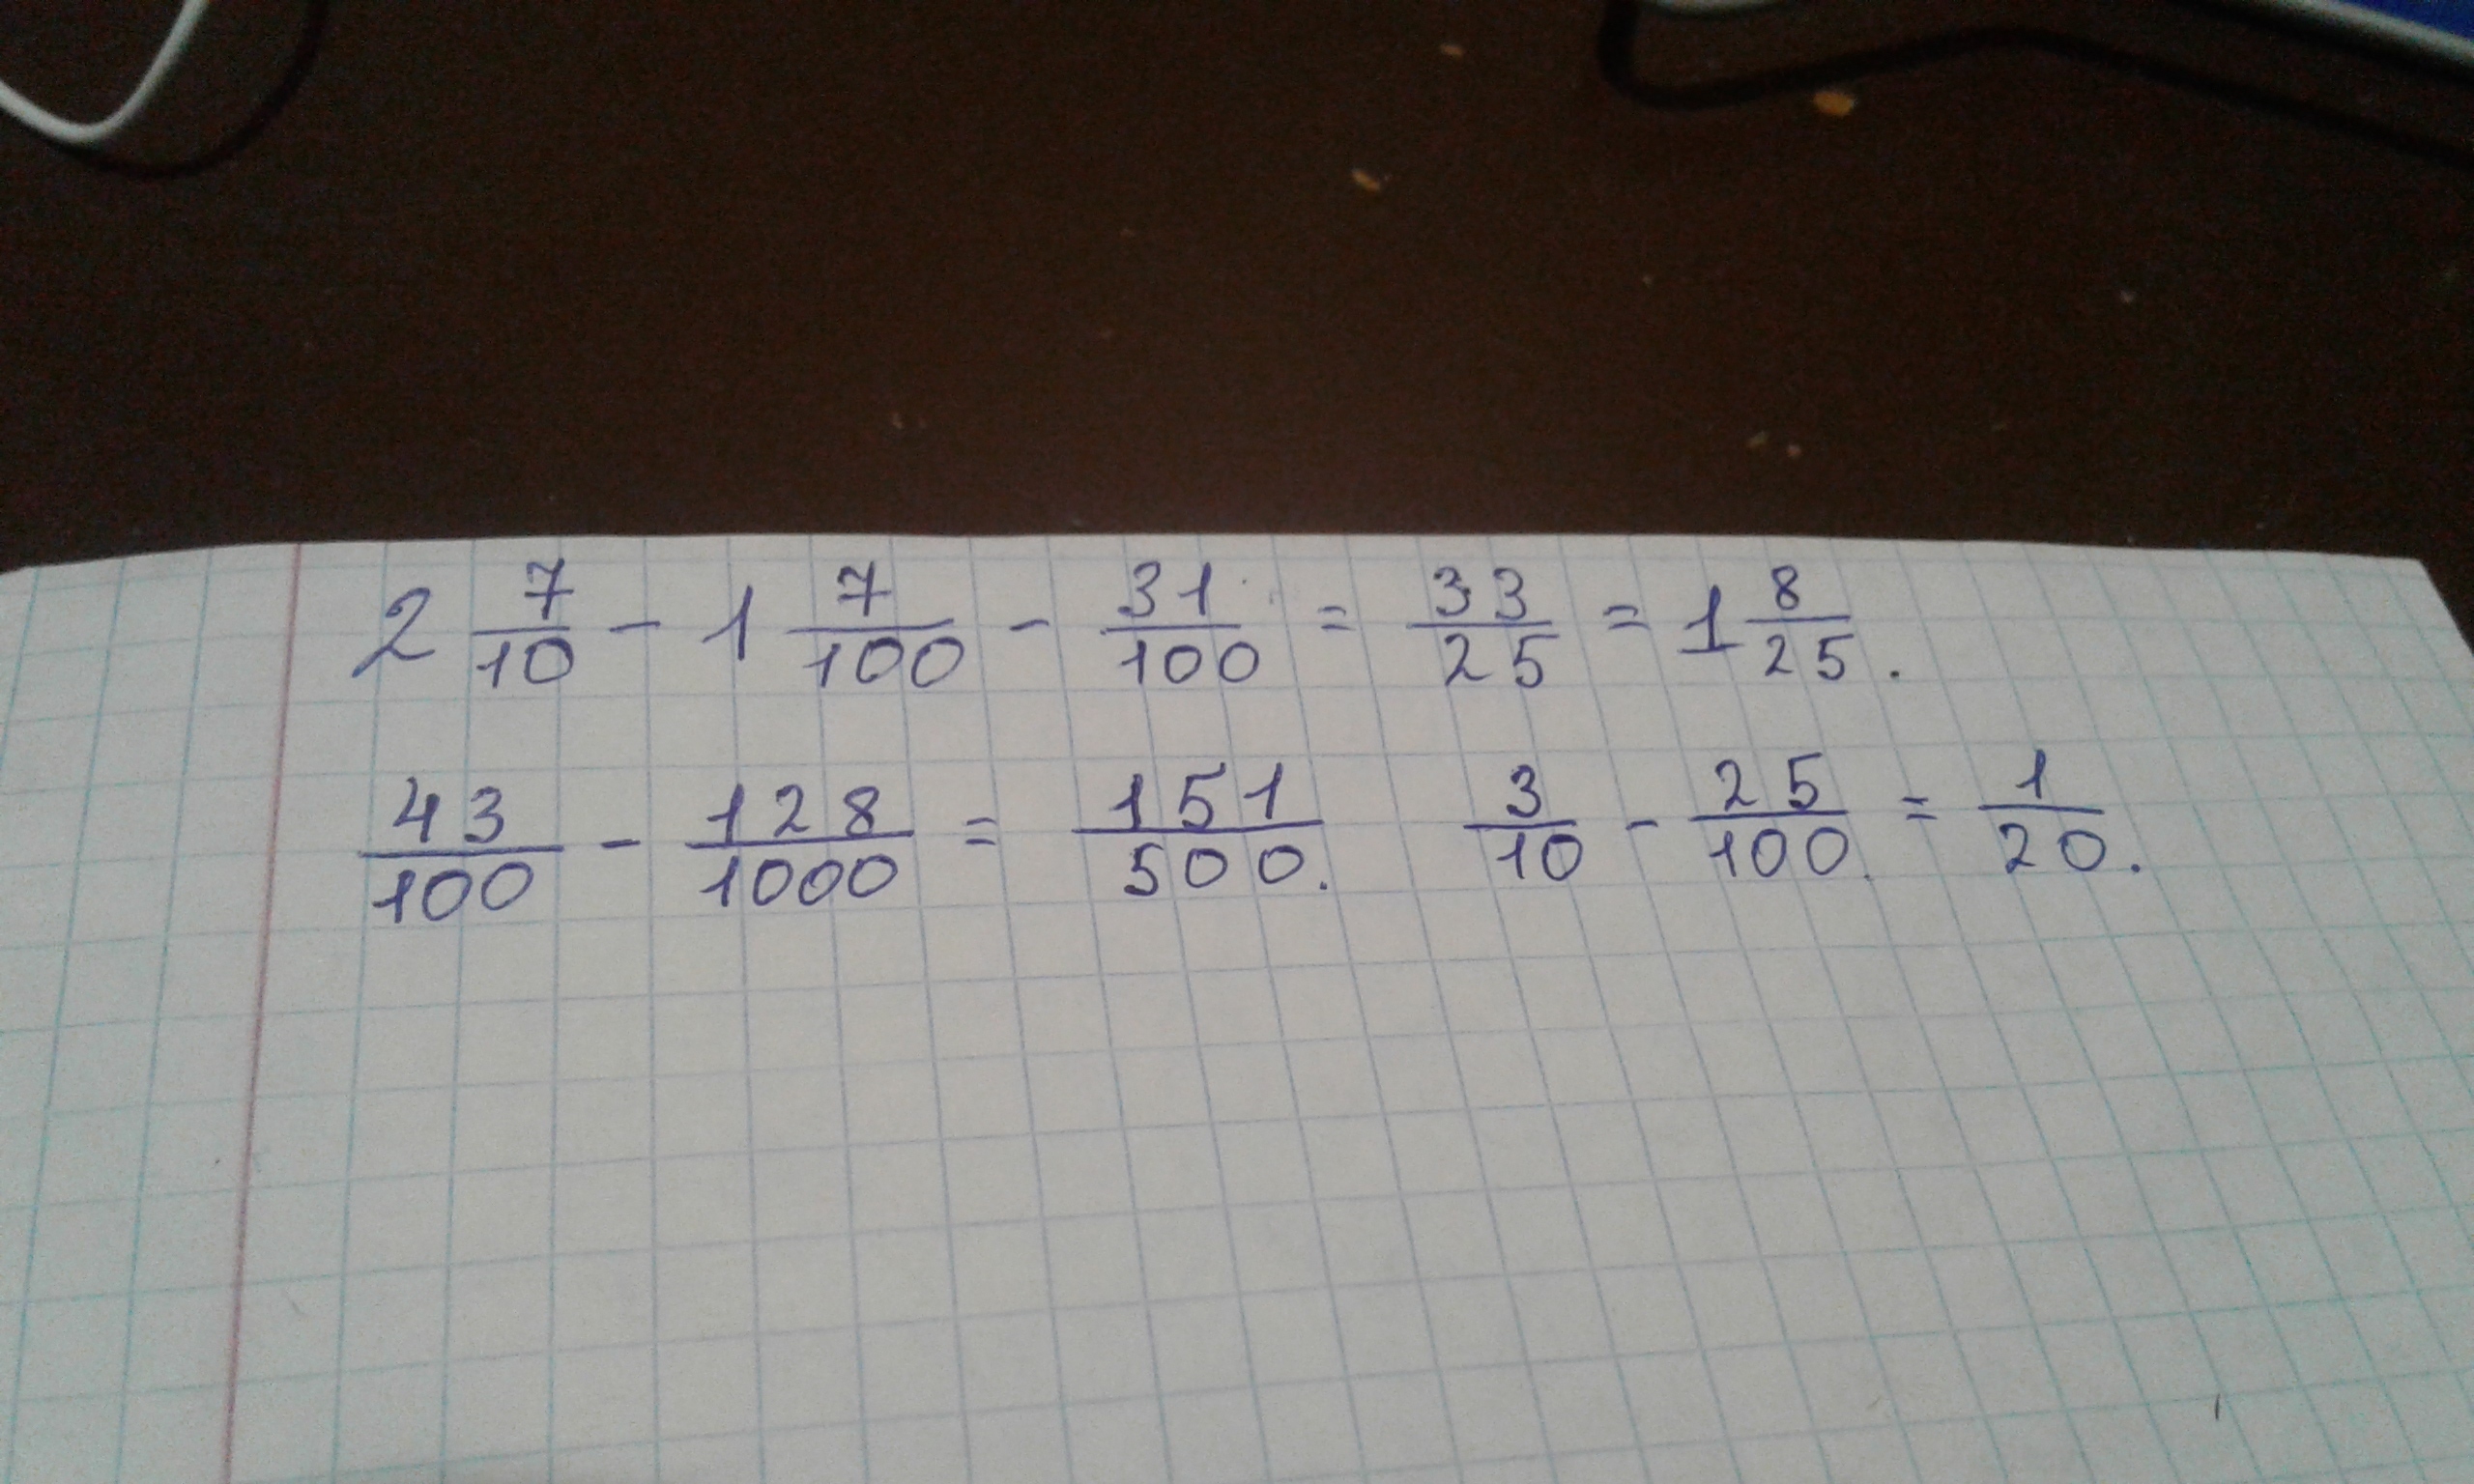 2 7/10 - 1 7/100 - 31/100 = 33/25 = 1 8/25.
43/100 - 128/1000 = 151/500. 3/10 - 25/100. = 1/20.